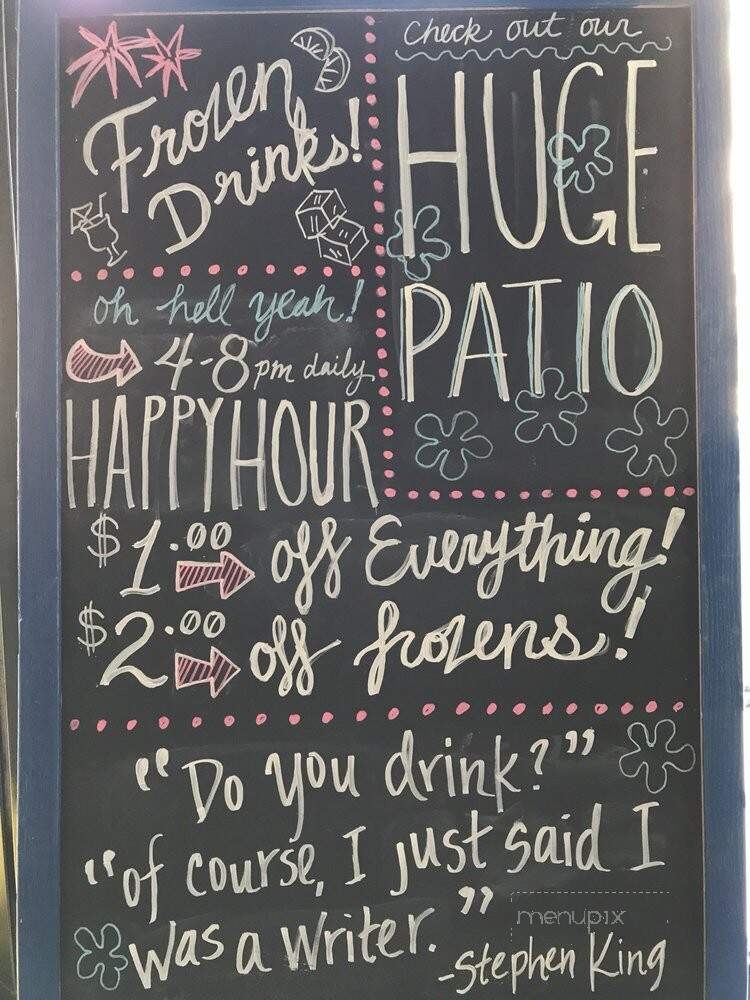 Frozen
Drinks!
check out our
HUGE
PATIO
oh hell yeah!
4-8 pm daily
HAPPY HOUR
$1.00 off Everything!
$2.00 off frozens!
"Do you drink?"
"of course, I just said I
was a writer."
-Stephen King
menupix